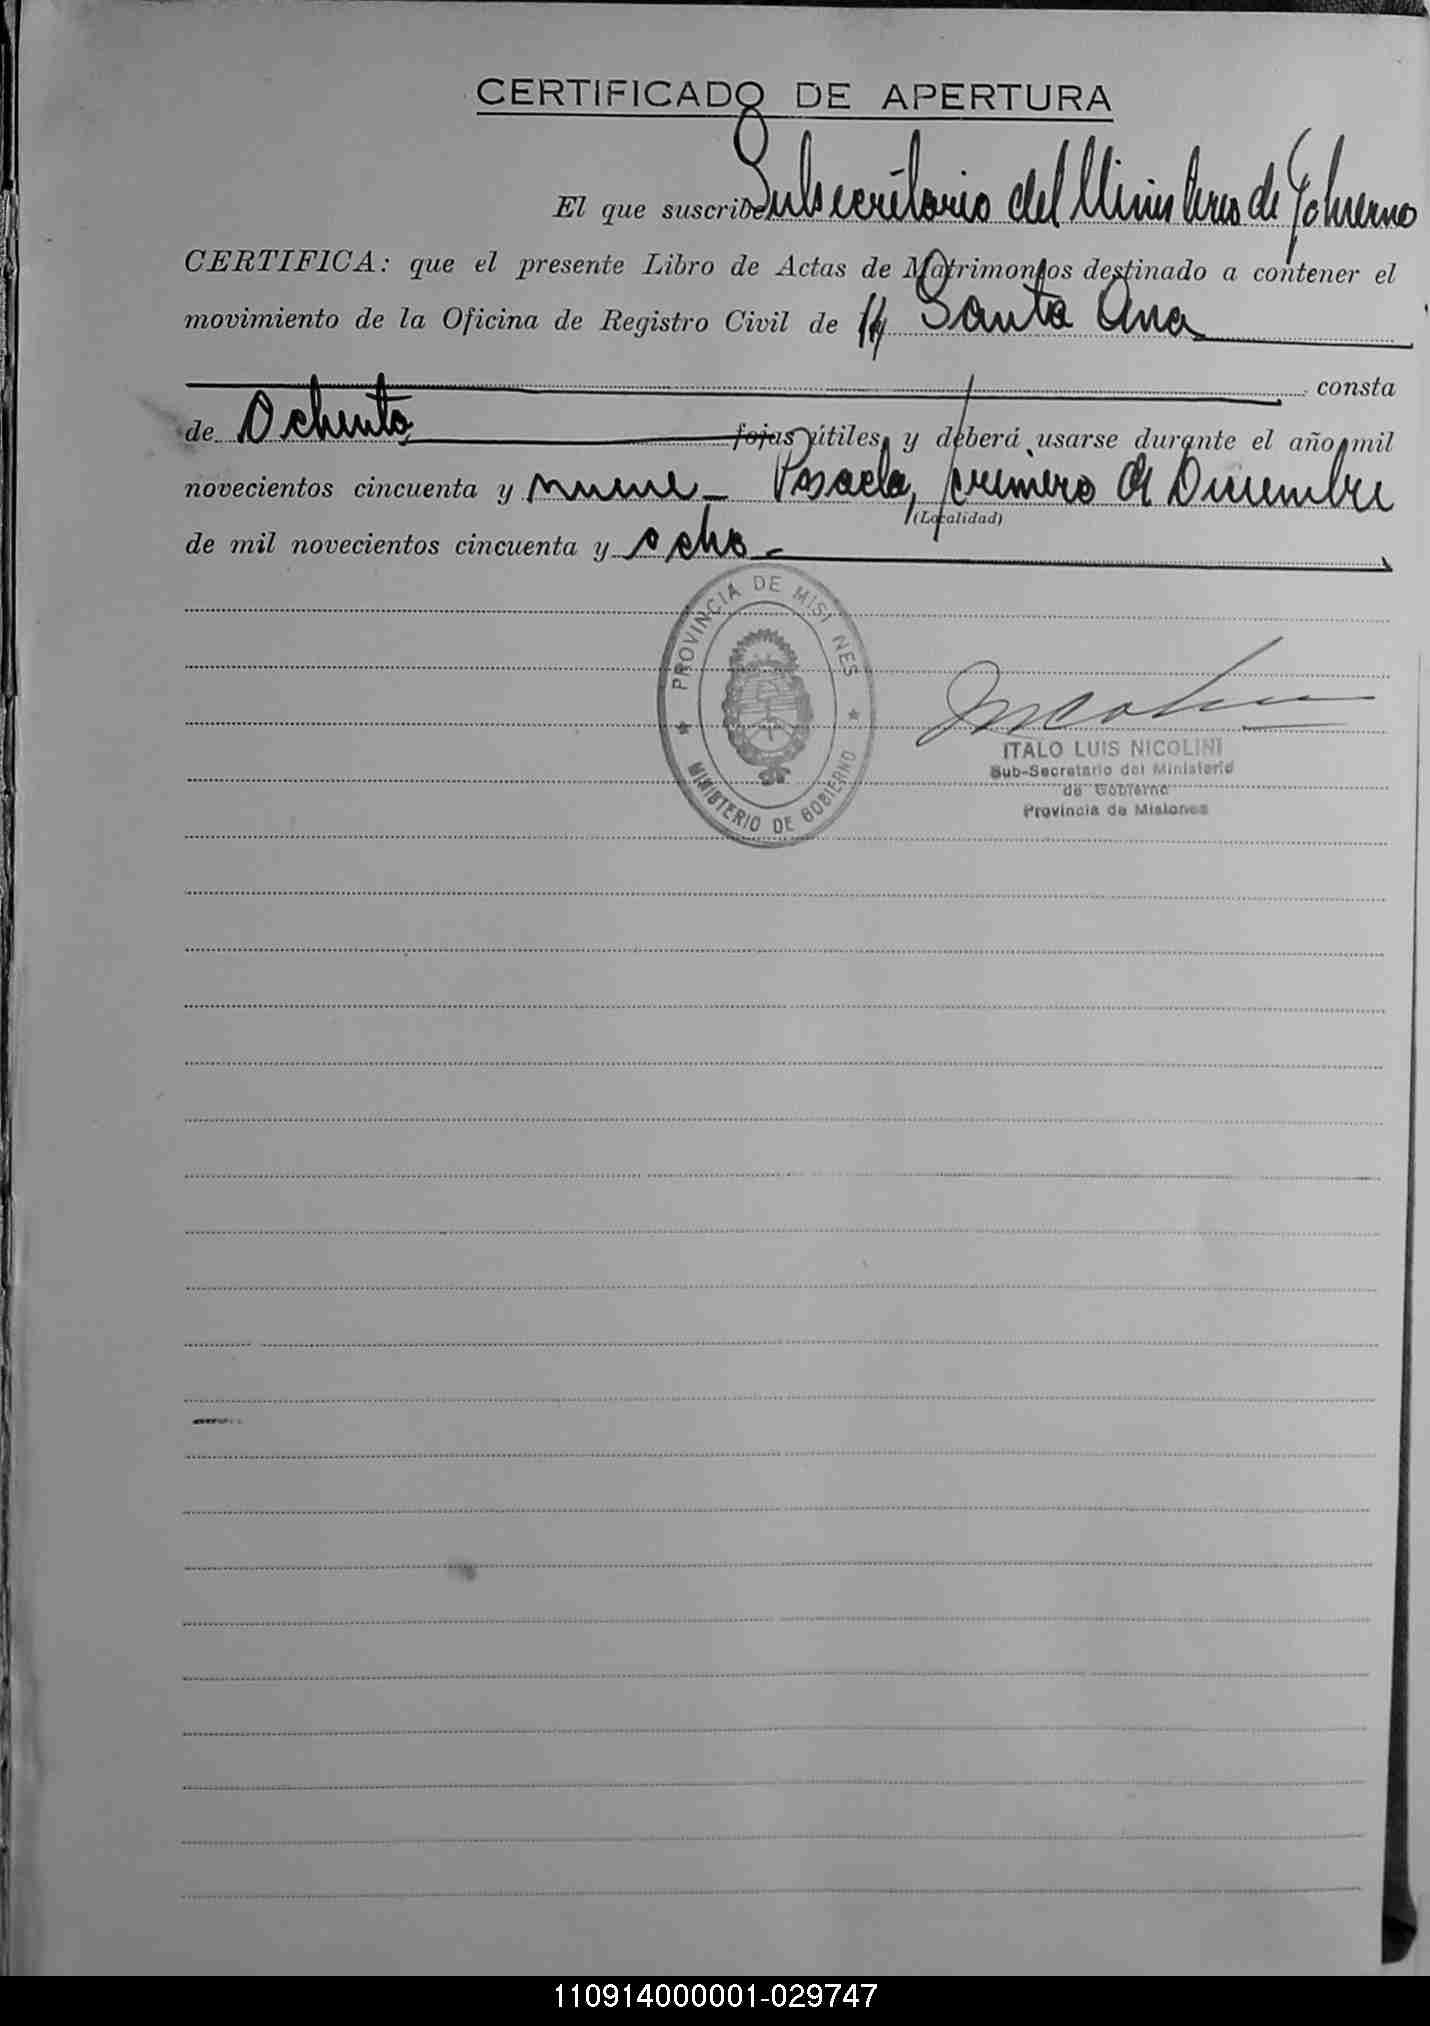 CERTIFICADO DE APERTURA
El que suscribe Subsecretario del Ministerio de Gobierno
CERTIFICA: que el presente Libro de Actas de Matrimonios destinado a contener el
movimiento de la Oficina de Registro Civil de Santa Ana
consta
de Ochenta fojas útiles, y deberá usarse durante el año mil
novecientos cincuenta y nueve - Posadas, primero de Diciembre
(Localidad)
de mil novecientos cincuenta y ocho -
PROVINCIA DE MISI NES
MINISTERIO DE GOBIERNO
ITALO LUIS NICOLINI
Sub-Secretario del Ministerio
de Gobierno
Provincia de Misiones
110914000001-029747